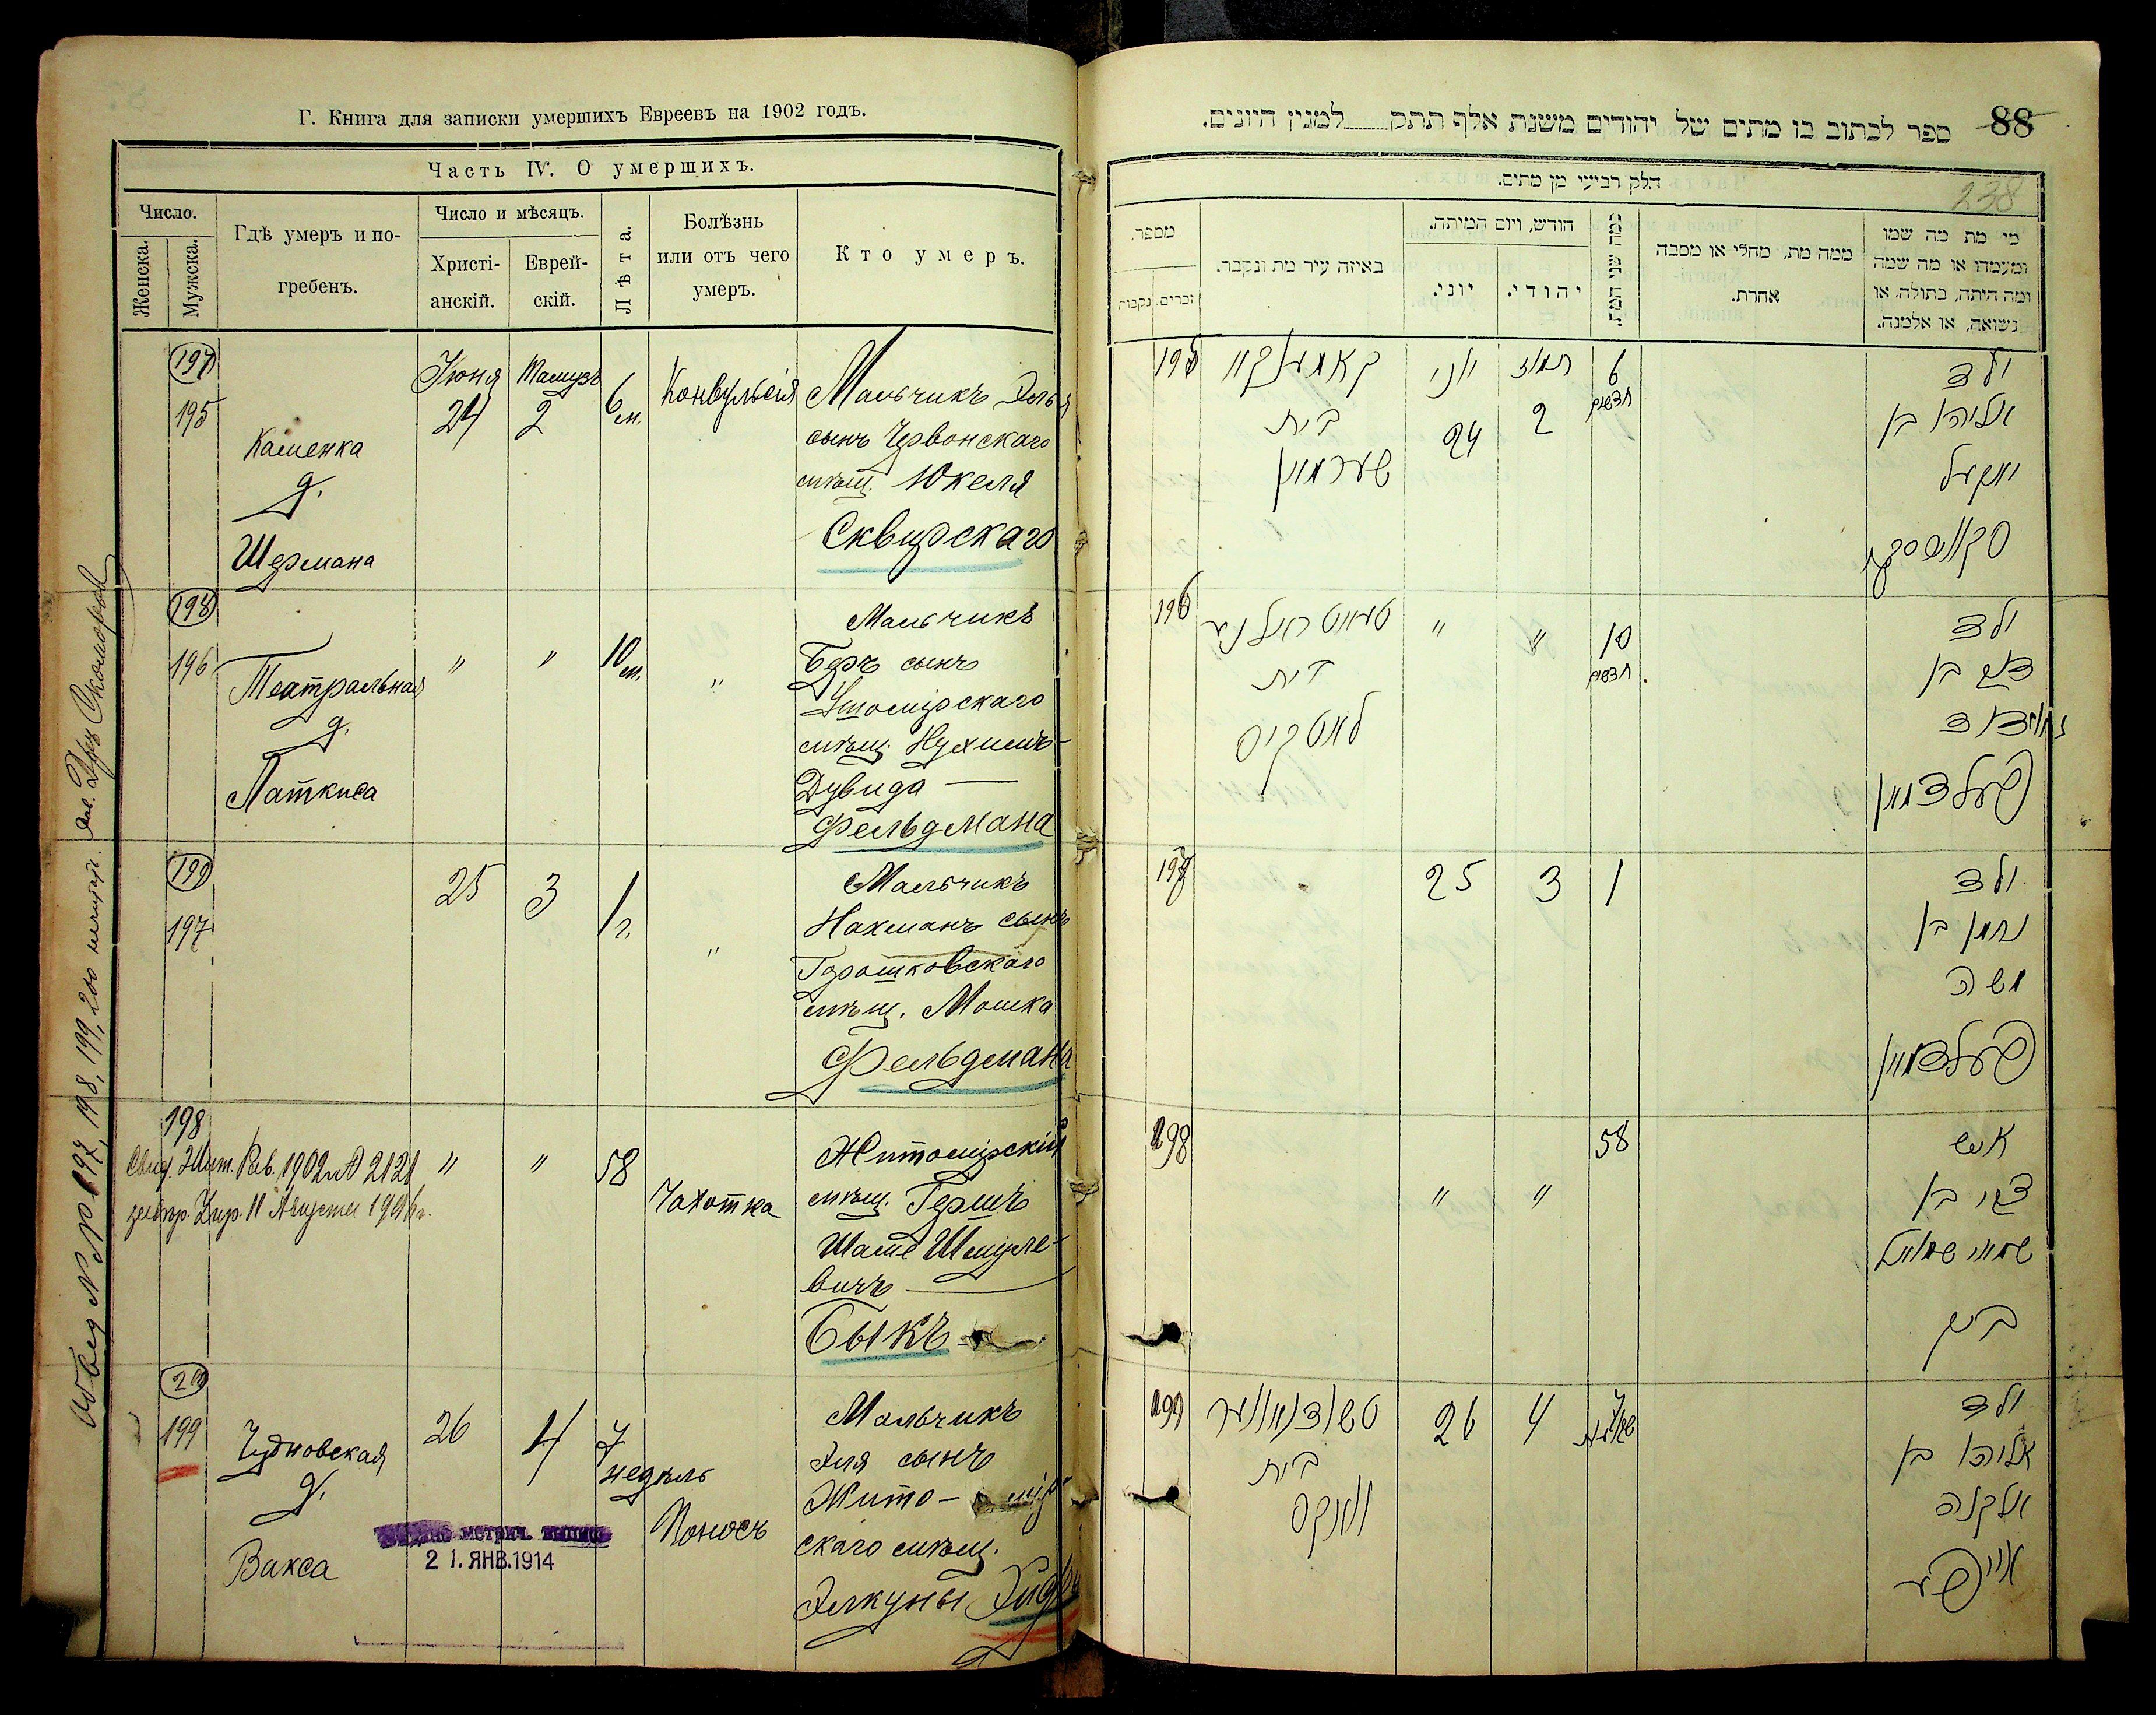 Г. Книга для записки умершихъ Евреевъ на 1902 годъ.
Часть IV. О умершихъ.
Число.
Женска.
Мужска.
Гдѣ умеръ и по-
гребенъ.
Число и мѣсяцъ.
Христі-
анскій.
Еврей-
скій.
Лѣта.
Болѣзнь
или отъ чего
умеръ.
Кто умеръ.
197
195
Каменка
д.
Шермана
Юня
24
Тамузъ
2
6 м.
Конвульсія
Мальчикъ Элья
сынъ Чрвонскаго
мѣщ. Юкеля
Сквирскаго
198
196
Театральная
д.
Латкиса
"
"
10 м.
"
Мальчикъ
Беръ сынъ
Ушомірскаго
мѣщ. Нухимъ-
Дувида
Фельдмана
199
197
25
3
1 г.
"
Мальчикъ
Нахманъ сынъ
Горошковскаго
мѣщ. Мошка
Фельдмана
198
Свид. Жит. Рав. 1902 № 2121
11 Августа
"
"
58
Чахотка
Житомірскій
мѣщ. Гершъ
Шае Шмуле-
вичъ
Быкъ
199
Чудновская
д.
Вакса
26
4
7
недѣль
Поносъ
Мальчикъ
Эля сынъ
Жито- мір
скаго мѣщ.
Элкуны
метрич. выпись
2 1. ЯНВ. 1914
197, 198, 199, 200
88
238
ספר לכתוב בו מתים של יהודים משנת אלף תתק למנין היונים.
חלק רביעי מן מתים.
מספר.
זכרים.
נקבות
באיזה עיר מת ונקבר.
חודש, ויום המיתה.
יוני.
יהודי.
כמה שני המת
ממה מת, מחלי או מסבה
אחרת.
מי מת מה שמו
ומעמדו או מה שמה
ומה היתה, בתולה, או
נשואה, או אלמנה.
195
קאמענקע
בית
שערמאן
יוני
24
תמוז
2
6
חדשים
ילד
אליהו בן
יאקעל
196
בית
לאטקיס
"
"
10
חדשים
ילד
בן
פעלדמאן
197
25
3
1
ילד
נחמן בן
משה
פעלדמאן
198
"
"
58
איש
צבי בן
ביק
199
בית
וואקס
26
4
7
שבועות
ילד
אליהו בן
אלקנה